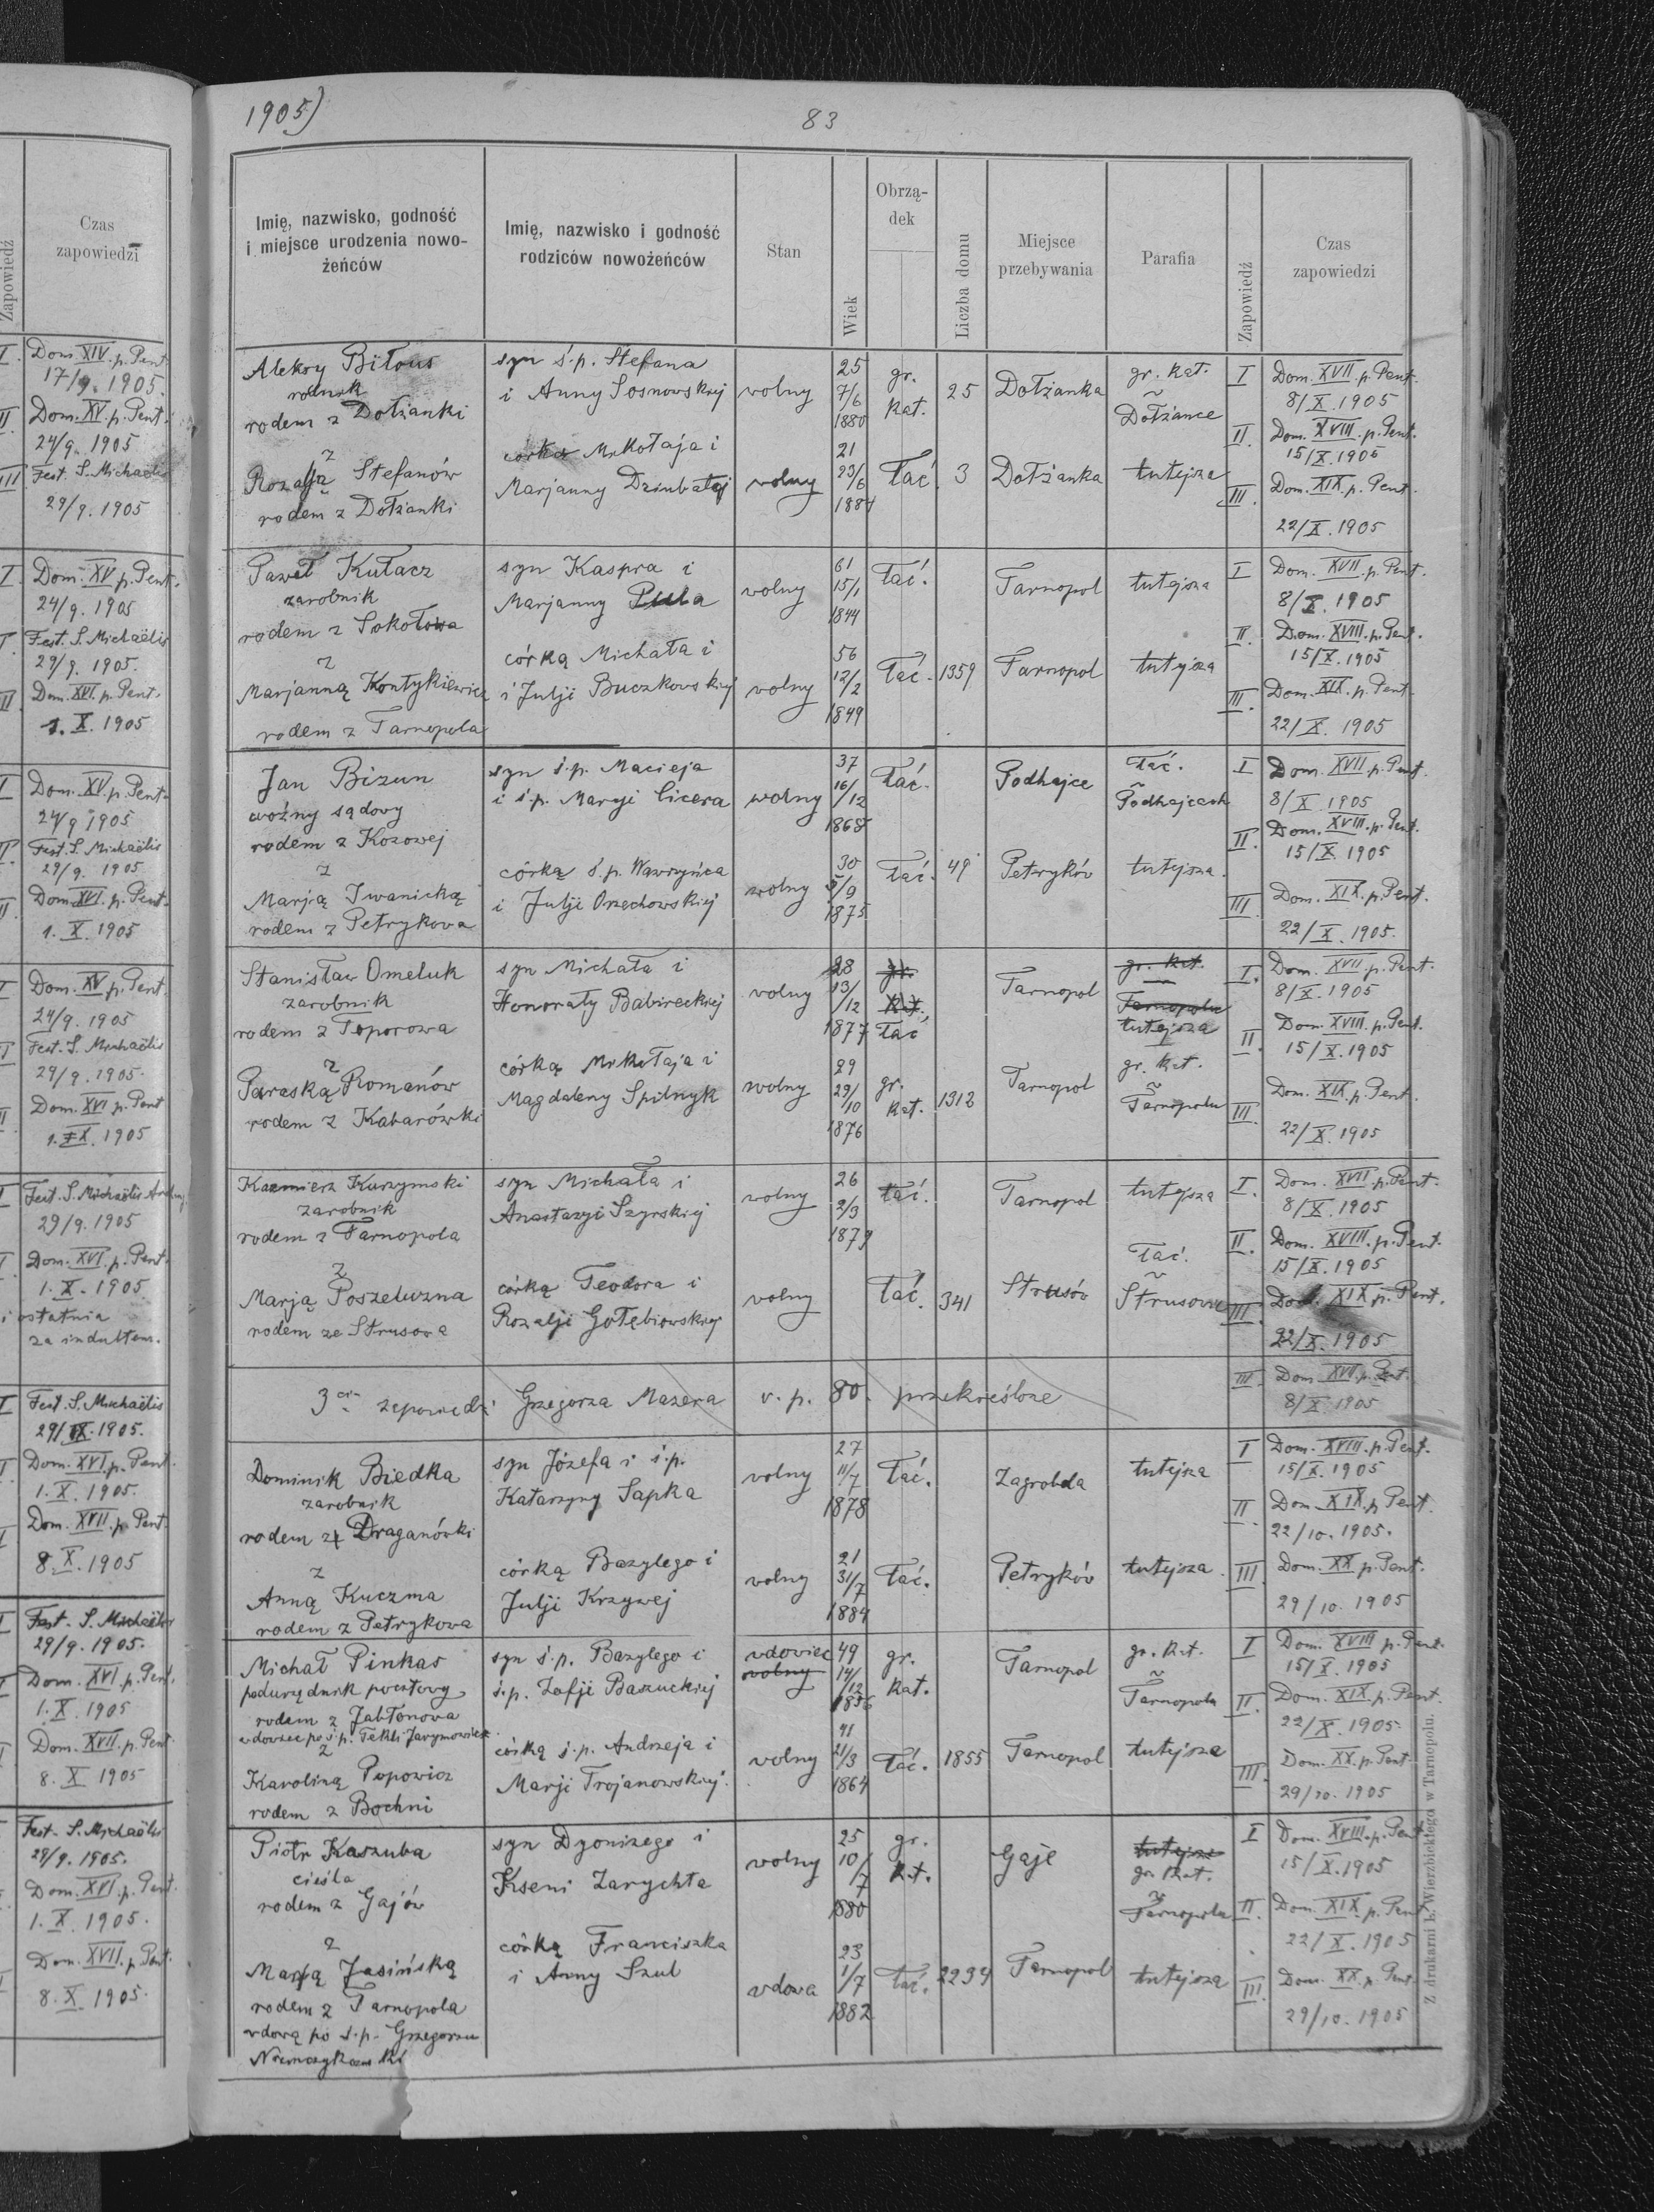 Zapowiedź
Czas
zapowiedzi
I. Dom. XIV. p. Pent
17/9. 1905.
II Dom. XV. p. Pent.
24/9. 1905
III Fest. S. Michaëlis
29/9. 1905
I. Dom. XV p. Pent.
24/9. 1905
Fest. S. Michaëlis
29/9. 1905.
Dom. XVI. p. Pent.
1. X. 1905
I Dom. XV. p. Pent.
24/9 1905
Fest. S. Michaëlis
29/9. 1905
Dom. XVI. p. Pent.
1. X. 1905
I Dom. XV p. Pent.
24/9. 1905
Fest. S. Michaëlis
29/9. 1905.
Dom. XVI p. Pent
1. X. 1905
I Fest. S. Michaëlis
29/9. 1905
Dom. XVI p. Pent.
1. X. 1905
i ostatnia
za indultem.
I Fest. S. Michaëlis
29/IX. 1905.
Dom. XVI p. Pent.
1. X. 1905.
Dom. XVII. p. Pent.
8. X. 1905
Fest. S. Michaëlis
29/9. 1905.
Dom. XVI p. Pent.
1. X. 1905
Dom. XVII. p. Pent
8. X 1905
Fest. S. Michaëlis
29/9. 1905.
Dom. XVI. p. Pent.
1. X. 1905.
Dom. XVII. p. Pent.
8. X. 1905.
1905)
83
Imię, nazwisko, godność
i miejsce urodzenia nowo-
żeńców
Imię, nazwisko i godność
rodziców nowożeńców
Stan
Wiek
Obrzą-
dek
Liczba domu
Miejsce
przebywania
Parafia
Zapowiedź
Czas
zapowiedzi
Aleksy Biłous
rolnik
rodem z Dołżanki
syn ś.p. Stefana
i Anny Sosnowskiej
wolny
25
7/6
1880
gr.
kat.
25
Dołżanka
gr. kat.
~
Dołżance
I Dom. XVII. p. Pent.
8/X. 1905
II. Dom. XVIII. p. Pent.
15/X. 1905
z
Rozalją Stefanów
rodem z Dołżanki
córką Mikołaja i
Marjanny Dziubatej
wolny
21
23/6
1884
łać.
3
Dołżanka
tutejsza
III. Dom. XIX. p. Pent.
22/X. 1905
Paweł Kułacz
zarobnik
rodem z Sokołowa
syn Kaspra i
Marjanny Pula
wolny
61
15/1
1844
łać.
Tarnopol
tutejsza
I Dom. XVII. p. Pent.
8/X. 1905
II. Dom. XVIII. p. Pent.
15/X. 1905
z
Marjanną Kontykiewicz
rodem z Tarnopola
córką Michała i
i Julji Buczkowskiej
wolny
56
12/2
1849
łać.
1359
Tarnopol
tutejsza
III. Dom. XIX. p. Pent.
22/X. 1905
Jan Bizun
woźny sądowy
rodem z Kozowej
syn ś.p. Macieja
i ś.p. Maryi Cicera
wolny
37
16/12
1868
łać.
Podhajce
łać.
~
Podhajcach
I Dom. XVII. p. Pent.
8/X. 1905
II. Dom. XVIII. p. Pent.
15/X. 1905
z
Marją Iwanicką
rodem z Petrykowa
córką ś.p. Wawrzyńca
i Julji Orzechowskiej
wolny
30
5/9
1875
łać.
49
Petryków
tutejsza.
III Dom. XIX. p. Pent.
22/X. 1905.
Stanisław Omeluk
zarobnik
rodem z Toporowa
syn Michała i
Honoraty Babireckiej
wolny
28
13/12
1877
gr.
kat.,
łać
Tarnopol
gr. kat.
~
Tarnopolu
tutejsza
I. Dom. XVII. p. Pent.
8/X. 1905
II Dom. XVIII. p. Pent.
15/X. 1905
z
Paraską Romanów
rodem z Kabarówki
córką Mikołaja i
Magdaleny Spilnyk
wolny
29
29/10
1876
gr.
kat.
1312
Tarnopol
gr. kat.
~
Tarnopolu
III. Dom. XIX. p. Pent.
22/X. 1905
Kazimierz Kurzymski
zarobnik
rodem z Tarnopola
syn Michała i
Anastazyi Szyrskiej
wolny
26
2/3
1879
łać.
Tarnopol
tutejsza
I. Dom. XVII. p. Pent.
8/X. 1905
II. Dom. XVIII. p. Pent.
15/X. 1905
z
Marją Poszeluzna
rodem ze Strusowa
córką Teodora i
Rozalji Gołębiowskiej
wolny
łać.
341
Strusów
łać.
~
Strusowie
III. Dom. XIX p. Pent.
22/X. 1905
3cia zapowiedź Grzegorza Mazera v. p. 80. przekreślone
III. Dom. XVII. p. Pent.
8/X. 1905
Dominik Biedka
zarobnik
rodem z Draganówki
syn Józefa i ś.p.
Katarzyny Sapka
wolny
27
11/7
1878
łać.
Zagrobela
tutejsza
I Dom. XVIII. p. Pent.
15/X. 1905
II Dom. XIX. p Pent.
22/10. 1905.
z
Anną Kuczma
rodem z Petrykowa
córką Bazylego i
Julji Krzywej
wolny
21
31/7
1884
łać.
Petryków
tutejsza.
III. Dom. XX p. Pent.
29/10. 1905
Michał Pinkas
podurzędnik pocztowy
rodem z Jabłonowa
wdowiec po ś.p. Tekli Jarymowicz
syn ś.p. Bazylego i
ś.p. Zofji Baszuckiej
wdowiec
wolny
49
14/12
1856
gr.
kat.
Tarnopol
gr. kat.
~
Tarnopolu
I Dom. XVIII p. Pent.
15/X. 1905
II Dom. XIX. p. Pent.
22/X. 1905
z
Karoliną Popowicz
rodem z Bochni
córką ś.p. Andrzeja i
Marji Trojanowskiej.
wolny
41
21/3
1864
łać.
1855
Tarnopol
tutejsza
III. Dom. XX. p. Pent
29/10. 1905
Piotr Kaszuba
cieśla
rodem z Gajów
syn Dyonizego i
Kseni Zarychta
wolny
25
10/7
1880
gr.
kat.
Gaje
tutejsza
gr. kat.
~
Tarnopolu
I Dom. XVIII. p. Pent
15/X. 1905
II. Dom. XIX. p. Pent
22/X. 1905
z
Marją Jasińską
rodem z Tarnopola
wdową po ś.p. Grzegorzu
córką Franciszka
i Anny Szul
wdowa
23
1/7
1882
łać.
2294
Tarnopol
tutejsza
III. Dom. XX. p. Pent.
29/10. 1905
Z drukarni L. Wierzbickiego w Tarnopolu.